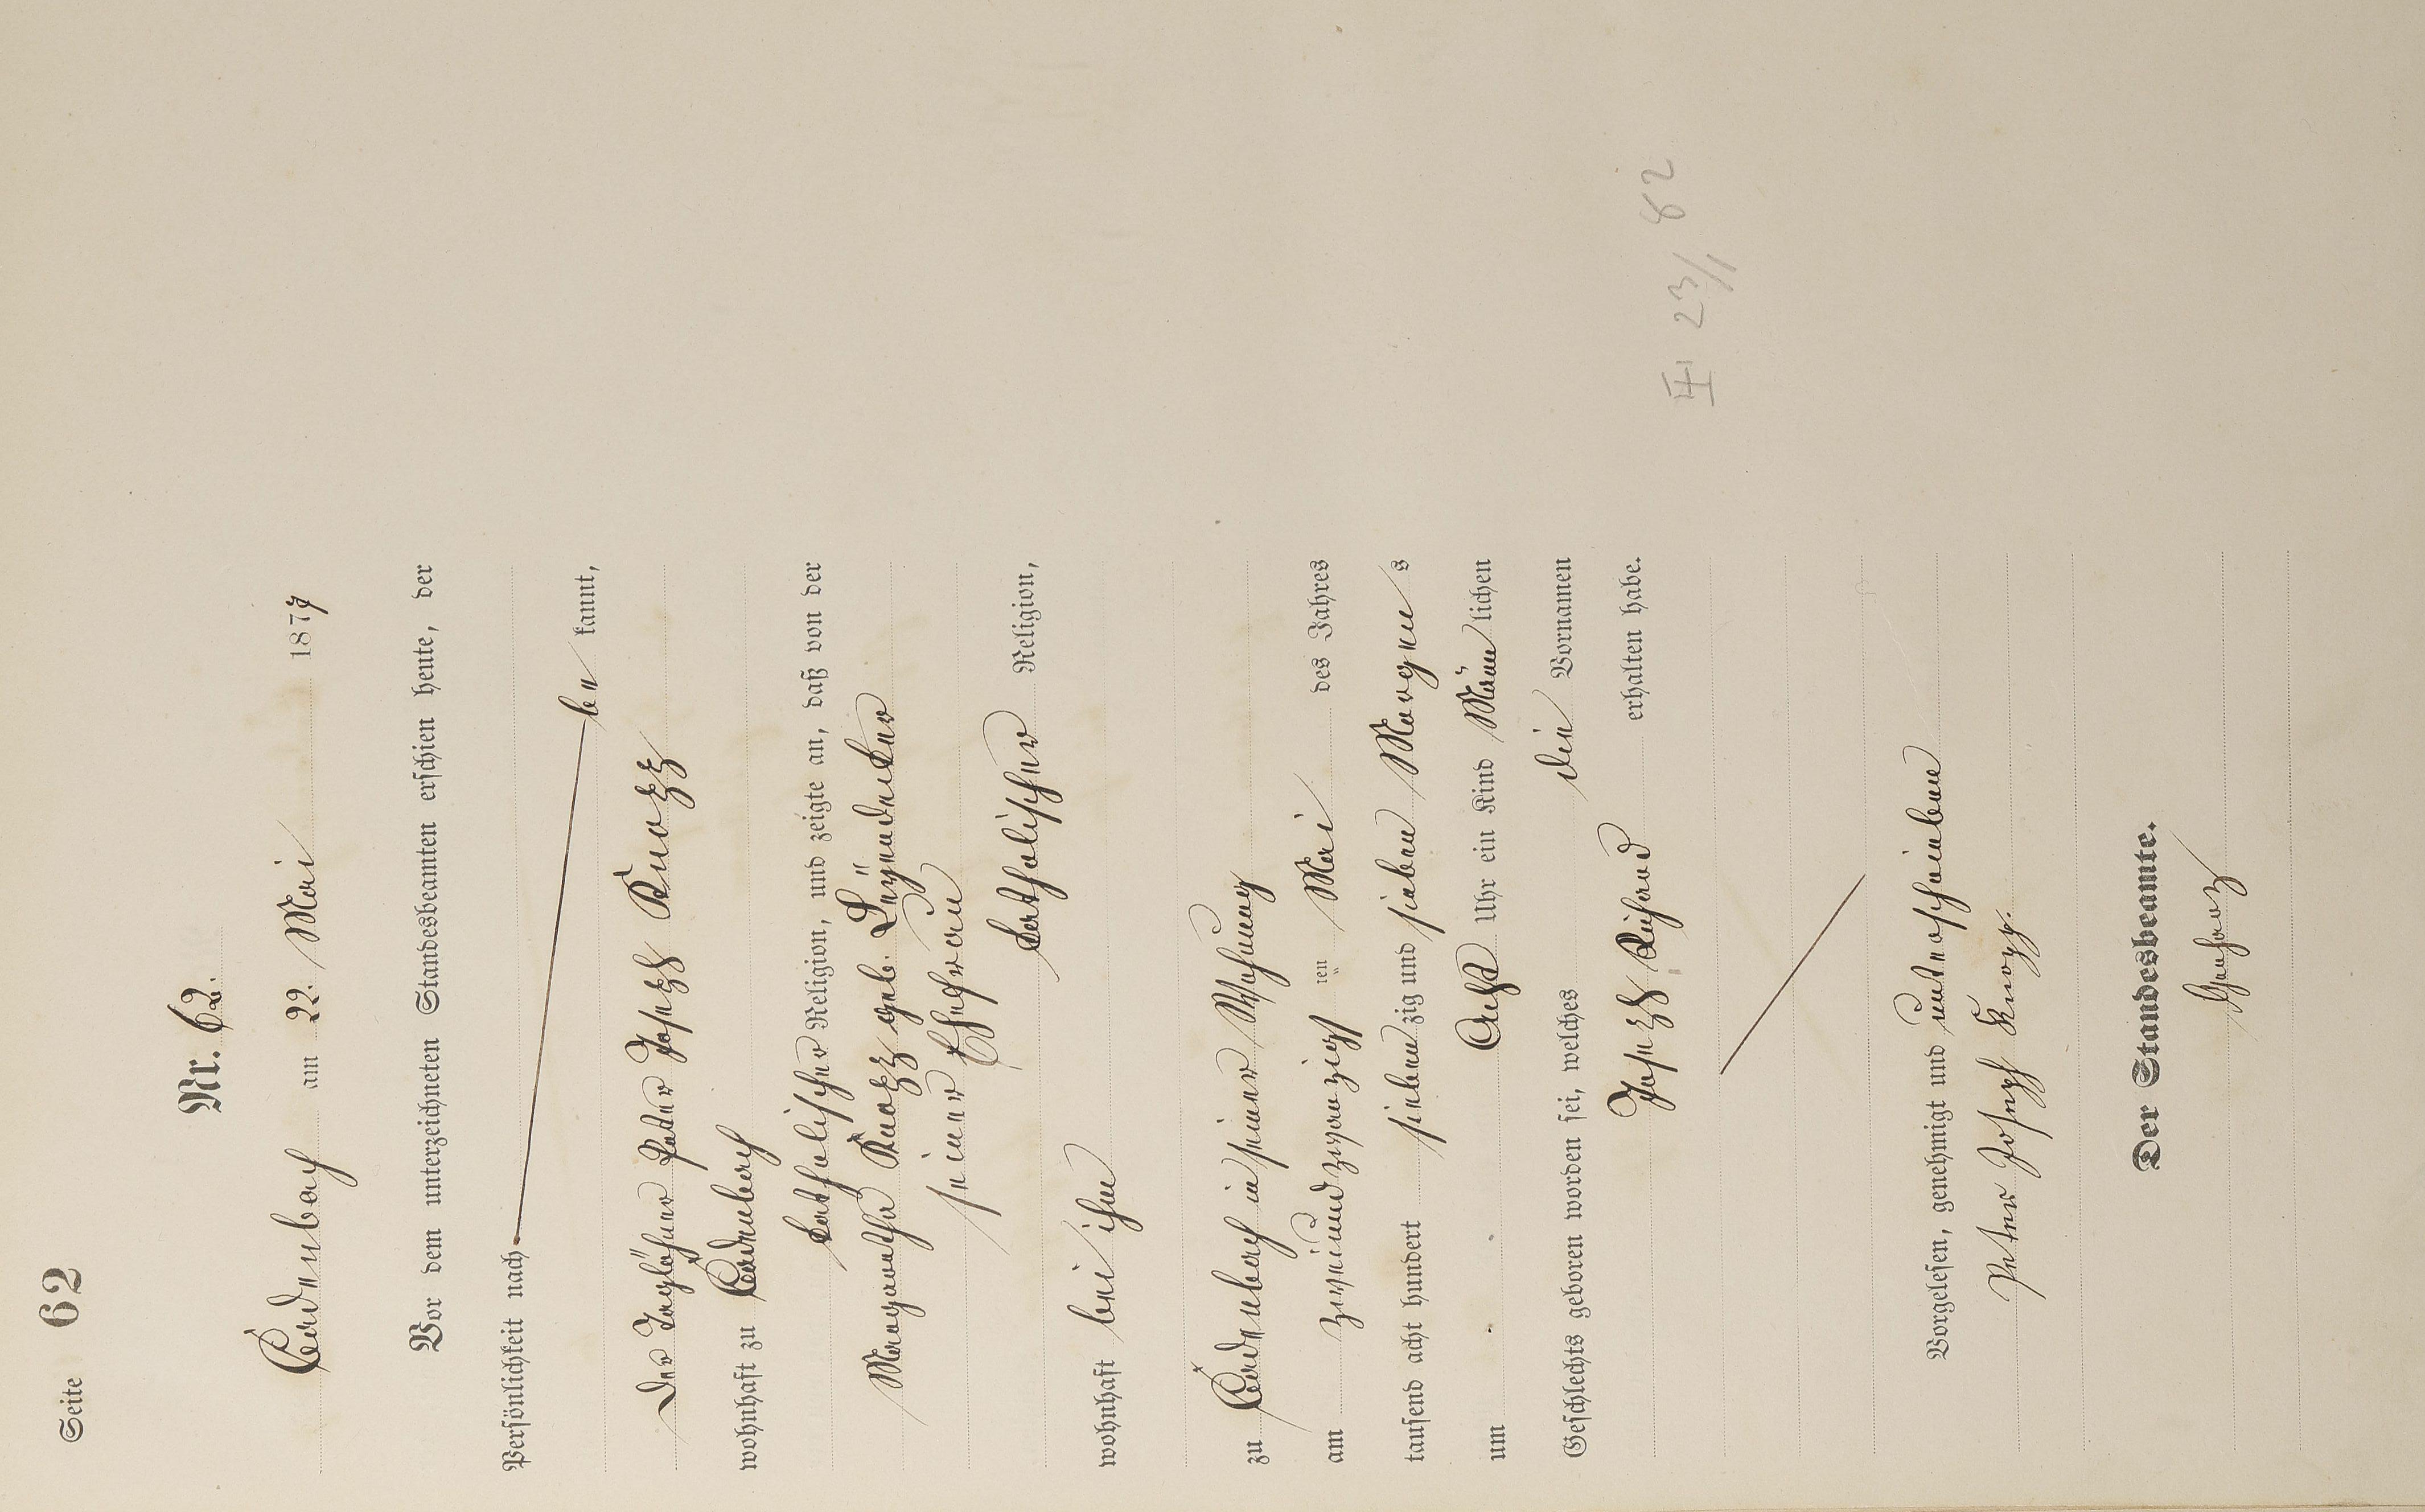 Seite 62
Nr. 62.
Cadenbach am 22. Mai 1877
Vor dem unterzeichneten Standesbeamten erschien heute, der
Persönlichkeit nach
be kannt,
der Taglöhner Peter Joseph Knopp
wohnhaft zu Cadenbach
katholischer Religion, und zeigte an, daß von der
Margaretha Knopp geb. Leyendecker
seiner Ehefrau
katholischer Religion,
wohnhaft bei ihm
zu Cadenbach in seiner Wohnung
am zweiundzwanzigs ten Mai des Jahres
tausend acht hundert sieben zig und sieben Morgen s
um Acht Uhr ein Kind Männ lichen
Geschlechts geboren worden sei, welches die Vornamen
Joseph Richard erhalten habe.
II 23/1 82
Vorgelesen, genehmigt und unterschrieben
Peter Joseph Knopp.
Der Standesbeamte.